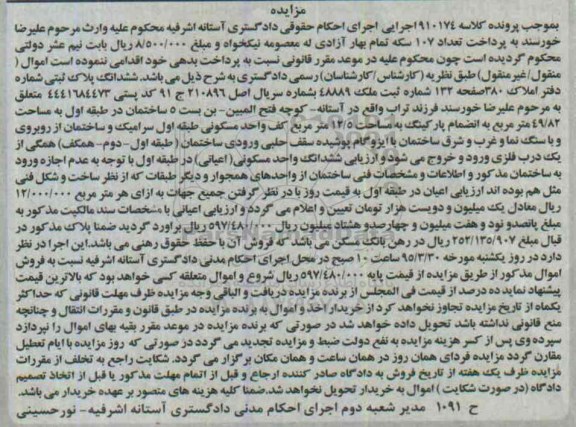 مزایده
بموجب پرونده کلاسه ۹۱۰۱۷۴اجرایی اجرای احکام حقوقی دادگستری آستانه اشرفیه محکوم علیه وراث مرحوم علیرضا
خورسند به پرداخت تعداد ۱۰۷ سکه تمام بهار آزادی له معصومه نیکخواه و مبلغ ۸/۵۰۰/۰۰۰ ریال بابت نیم عشر دولتی
محکوم گردیده است چون محکوم علیه در موعد مقرر قانونی نسبت به پرداخت بدهی خود اقدامی ننموده است اموال (
منقول/غیرمنقول) طبق نظریه (کارشناس /کارشناسان) رسمی دادگستری به شرح ذیل می باشد. ششدانگ پلاک ثبتی شماره
دفتر املاک ۳۸۰صفحه ۱۳۲ شماره ثبت ملک ۴۸۸۸۹ بشماره سریال اصل ۲۱۰۸۹۶ ج ۹۱ کد پستی ۴۴۴۱۶۸۴۴۷۳ متعلق
به مرحوم علیرضا خورسند فرزند تراب واقع در آستانه- کوچه فتح المبین- بن بست ۵ ساختمان در طبقه اول به مساحت
۴۹/۸۲ متر مربع به انضمام پارکینگ به مساحت ۱۲/۵ متر مربع کف واحد مسکونی طبقه اول سرامیک و ساختمان از روبروی
و با سنگ نما و غرب و شرق ساختمان با ایزوگام پوشیده سقف حلبی ورودی ساختمان (طبقه اول -دوم-همکف) همگی از
یک درب فلزی ورود و خروج می شود و ارزیابی ششدانگ واحد مسکونی( اعیانی) در طبقه اول با توجه به عدم اجازه ورود
به ساختمان مذکور و اطلاعات و مشخصات فنی ساختمان از واحدهای همجوار و دیگر طبقات که از نظر ساخت و شکل فنی
مثل هم بوده اند ارزیابی اعیان در طبقه اول به قیمت روز با در نظر گرفتن جمیع جهات به ازای هر متر مربع ۱۲/۰۰۰/۰۰۰
ریال معادل یک میلیون و دویست هزار تومان تعیین و اعلام می گردد و ارزیابی اعیانی با مشخصات سند مالکیت مذکور به
مبلغ پانصدو نود و هفت میلیون و چهارصدو هشتاد میلیون ریال ۵۹۷/۴۸۰/۰۰۰ ریال براورد گردید ضمنا پلاک مذکور در
قبال مبلغ ۲۵۲/۱۳۵/۹۰۷ ریال در رهن بانک مسکن می باشد که فروش آن با حفظ حقوق رهنی می باشد.این اجرا در نظر
دارد در روز یکشنبه مورخه ۹۵/۳/۳۰ ساعت ۱۰ صبح در محل اجرای احکام مدنی دادگستری آستانه اشرفیه نسبت به فروش
اموال مذکور از طریق مزایده از قیمت پایه ۵۹۷/۴۸۰/۰۰۰ ریال شروع و اموال متعلقه کسی خواهد بود که بالاترین قیمت
پیشنهاد نماید ده درصد از قیمت فی المجلس از برنده مزایده دریافت و الباقی وجه مزایده ظرف مهلت قانونی که حداکثر
یکماه از تاریخ مزایده تجاوز نخواهد کرد از خریدار اخذ و اموال به برنده مزایده در طبق قانون و مقررات انتقال و چنانچه
منع قانونی نداشته باشد تحویل داده خواهد شد در صورتی که برنده مزایده در موعد مقرر بقیه بهای اموال را نپردازد
سپرده وی پس از کسر هزینه مزایده به نفع دولت ضبط و مزایده تجدید می گردد در صورتی که روز مزایده با ایام تعطیل
مقارن گردد مزایده فردای همان روز در همان ساعت و همان مکان برگزار می گردد. شکایت راجع به تخلف از مقررات
مزایده ظرف یک هفته از تاریخ فروش به دادگاه صادر کننده ارجاع و قبل از اتمام مهلت مذکور یا قبل از اتخاذ تصمیم
دادگاه (در صورت شکایت ) اموال به خریدار تحویل نخواهد شد.ضمنا کلیه هزینه های متصور بر عهده خریدار می باشد.
ح ۱۰۹۱ مدیر شعبه دوم اجرای احکام مدنی دادگستری آستانه اشرفیه- نورحسینی